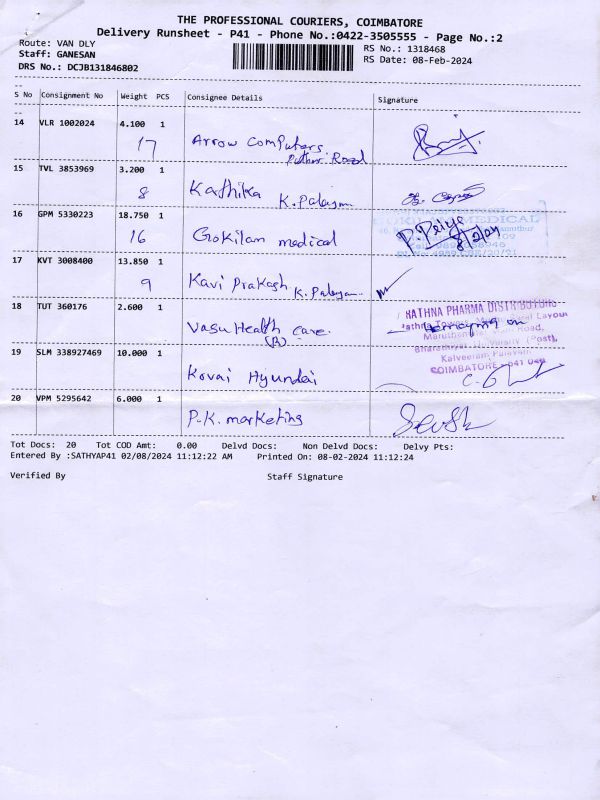 THE PROFESSIONAL COURIERS, COIMBATORE
Delivery Runsheet - P41 - Phone No.:0422-3505555 - Page No.:2
Route: VAN DLY RS No.: 1318468
Staff: GANESAN RS Date: 08-Feb-2024
DRS No.: DCJB131846802
S No Consignment No Weight PCS Consignee Details Signature
14 VLR 1002024 4.100 1
17 Arrow Computers
Road
15 TVL 3853969 3.200 1
8 Karthika K. Palayam
16 GPM 5330223 18.750 1
16 Gokilam medical P. Priya
MEDICAL
8/2/24
17 KVT 3008400 13.850 1
9 Kavi Prakash K. Palayam
18 TUT 360176 2.600 1
RATHNA PHARMA DISTRIBUTORS
Vasu Health care.
(R)
19 SLM 338927469 10.000 1
Kalveeram Palayam
COIMBATORE - 641 046
Kovai Hyundai
20 VPM 5295642 6.000 1
P.K. marketing
Tot Docs: 20 Tot COD Amt: 0.00 Delvd Docs: Non Delvd Docs: Delvy Pts:
Entered By :SATHYAP41 02/08/2024 11:12:22 AM Printed On: 08-02-2024 11:12:24
Verified By Staff Signature